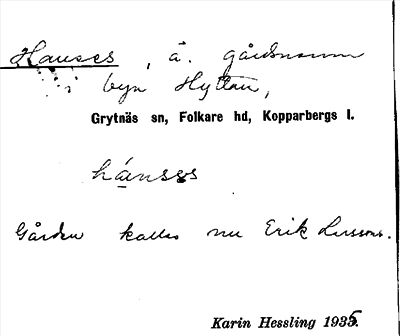 Hanses, ä. gårdsnamn
i byn Hyttan,
Grytnäs sn, Folkare hd, Kopparbergs l.
hánsęs
Gården kallas nu Erik Larssons.
Karin Hessling 1935.